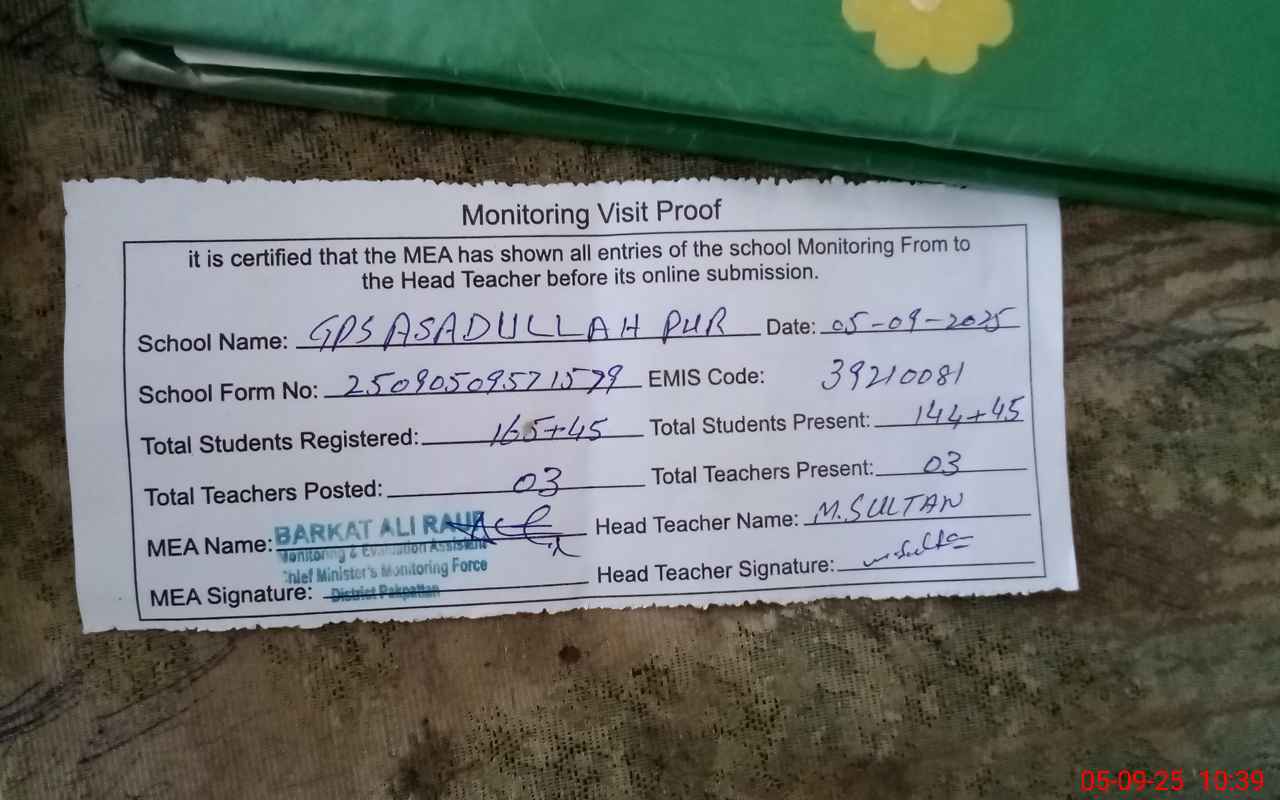 Monitoring Visit Proof
it is certified that the MEA has shown all entries of the school Monitoring From to
the Head Teacher before its online submission.
School Name: GPS ASADULLAH PUR Date: 05-09-2025
School Form No: 25090509571579 EMIS Code: 39210081
Total Students Registered: 165+45 Total Students Present: 144+45
Total Teachers Posted: 03 Total Teachers Present: 03
MEA Name: BARKAT ALI RAUF Head Teacher Name: M. SULTAN
Monitoring & Evaluation Assistent
Chief Minister's Monitoring Force
MEA Signature: District Pakpattan Head Teacher Signature:
05-09-25 10:39